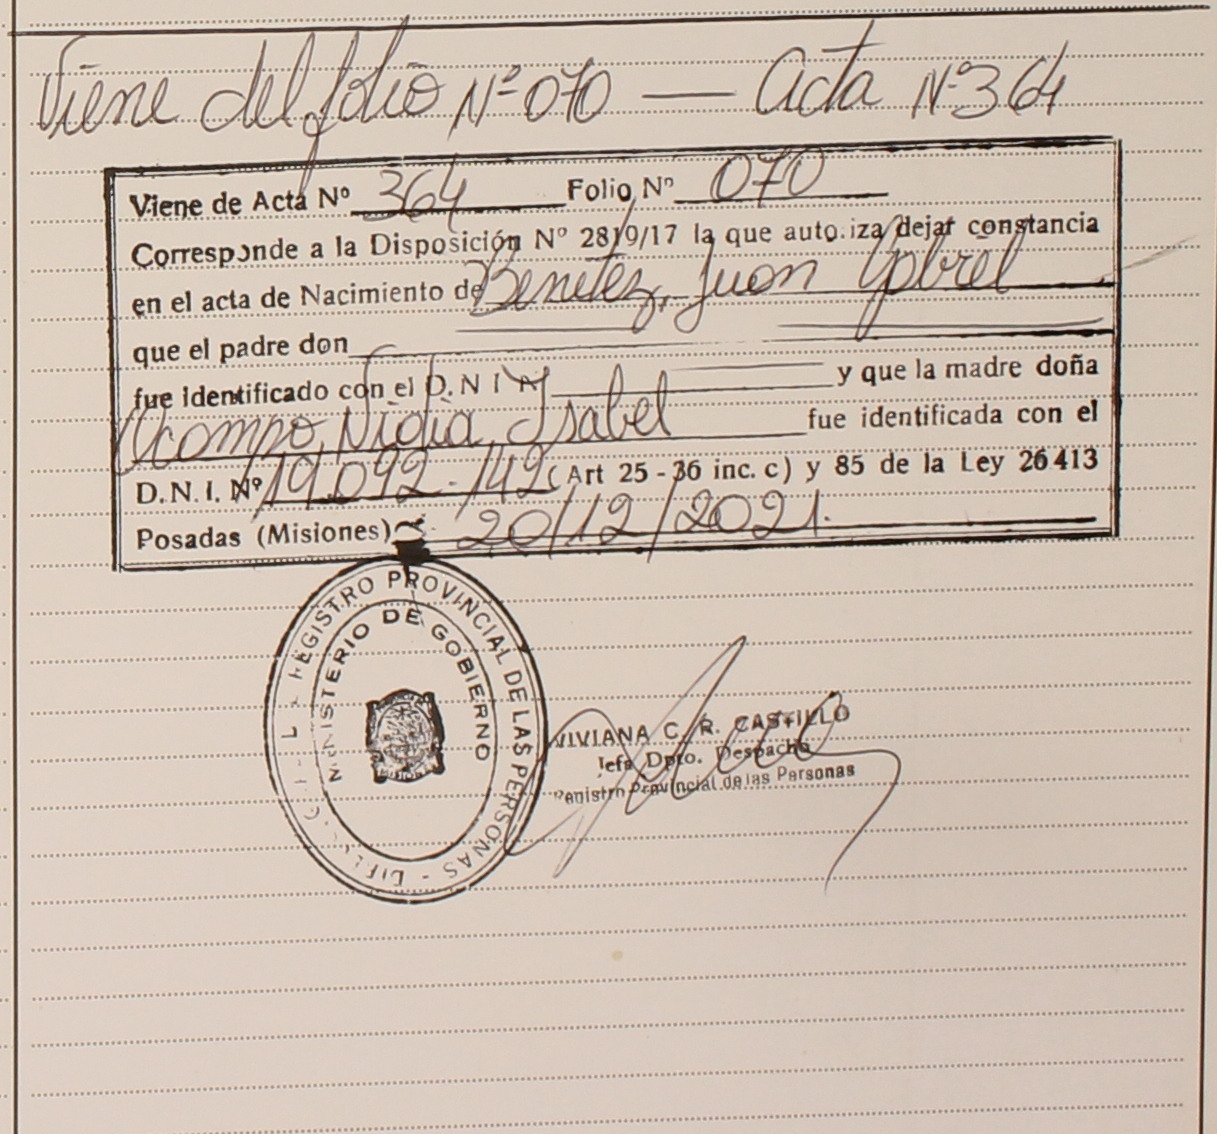 Viene del folio Nº 070 — Acta Nº 364
Viene de Acta Nº 364 Folio Nº 070
Corresponde a la Disposición Nº 2819/17 la que autoriza dejar constancia
en el acta de Nacimiento de Benitez, Juan Gabriel
que el padre don
fue identificado con el D.N I Nº y que la madre doña
Ocampo, Nidia Isabel fue identificada con el
D.N.I. Nº 19.092.142 (Art 25 - 36 inc. c) y 85 de la Ley 26413
Posadas (Misiones) 20/12/2021.
REGISTRO PROVINCIAL DE LAS PERSONAS
MINISTERIO DE GOBIERNO
VIVIANA C. R. CASTILLO
Jefa Dpto. Despacho
Registro Provincial de las Personas